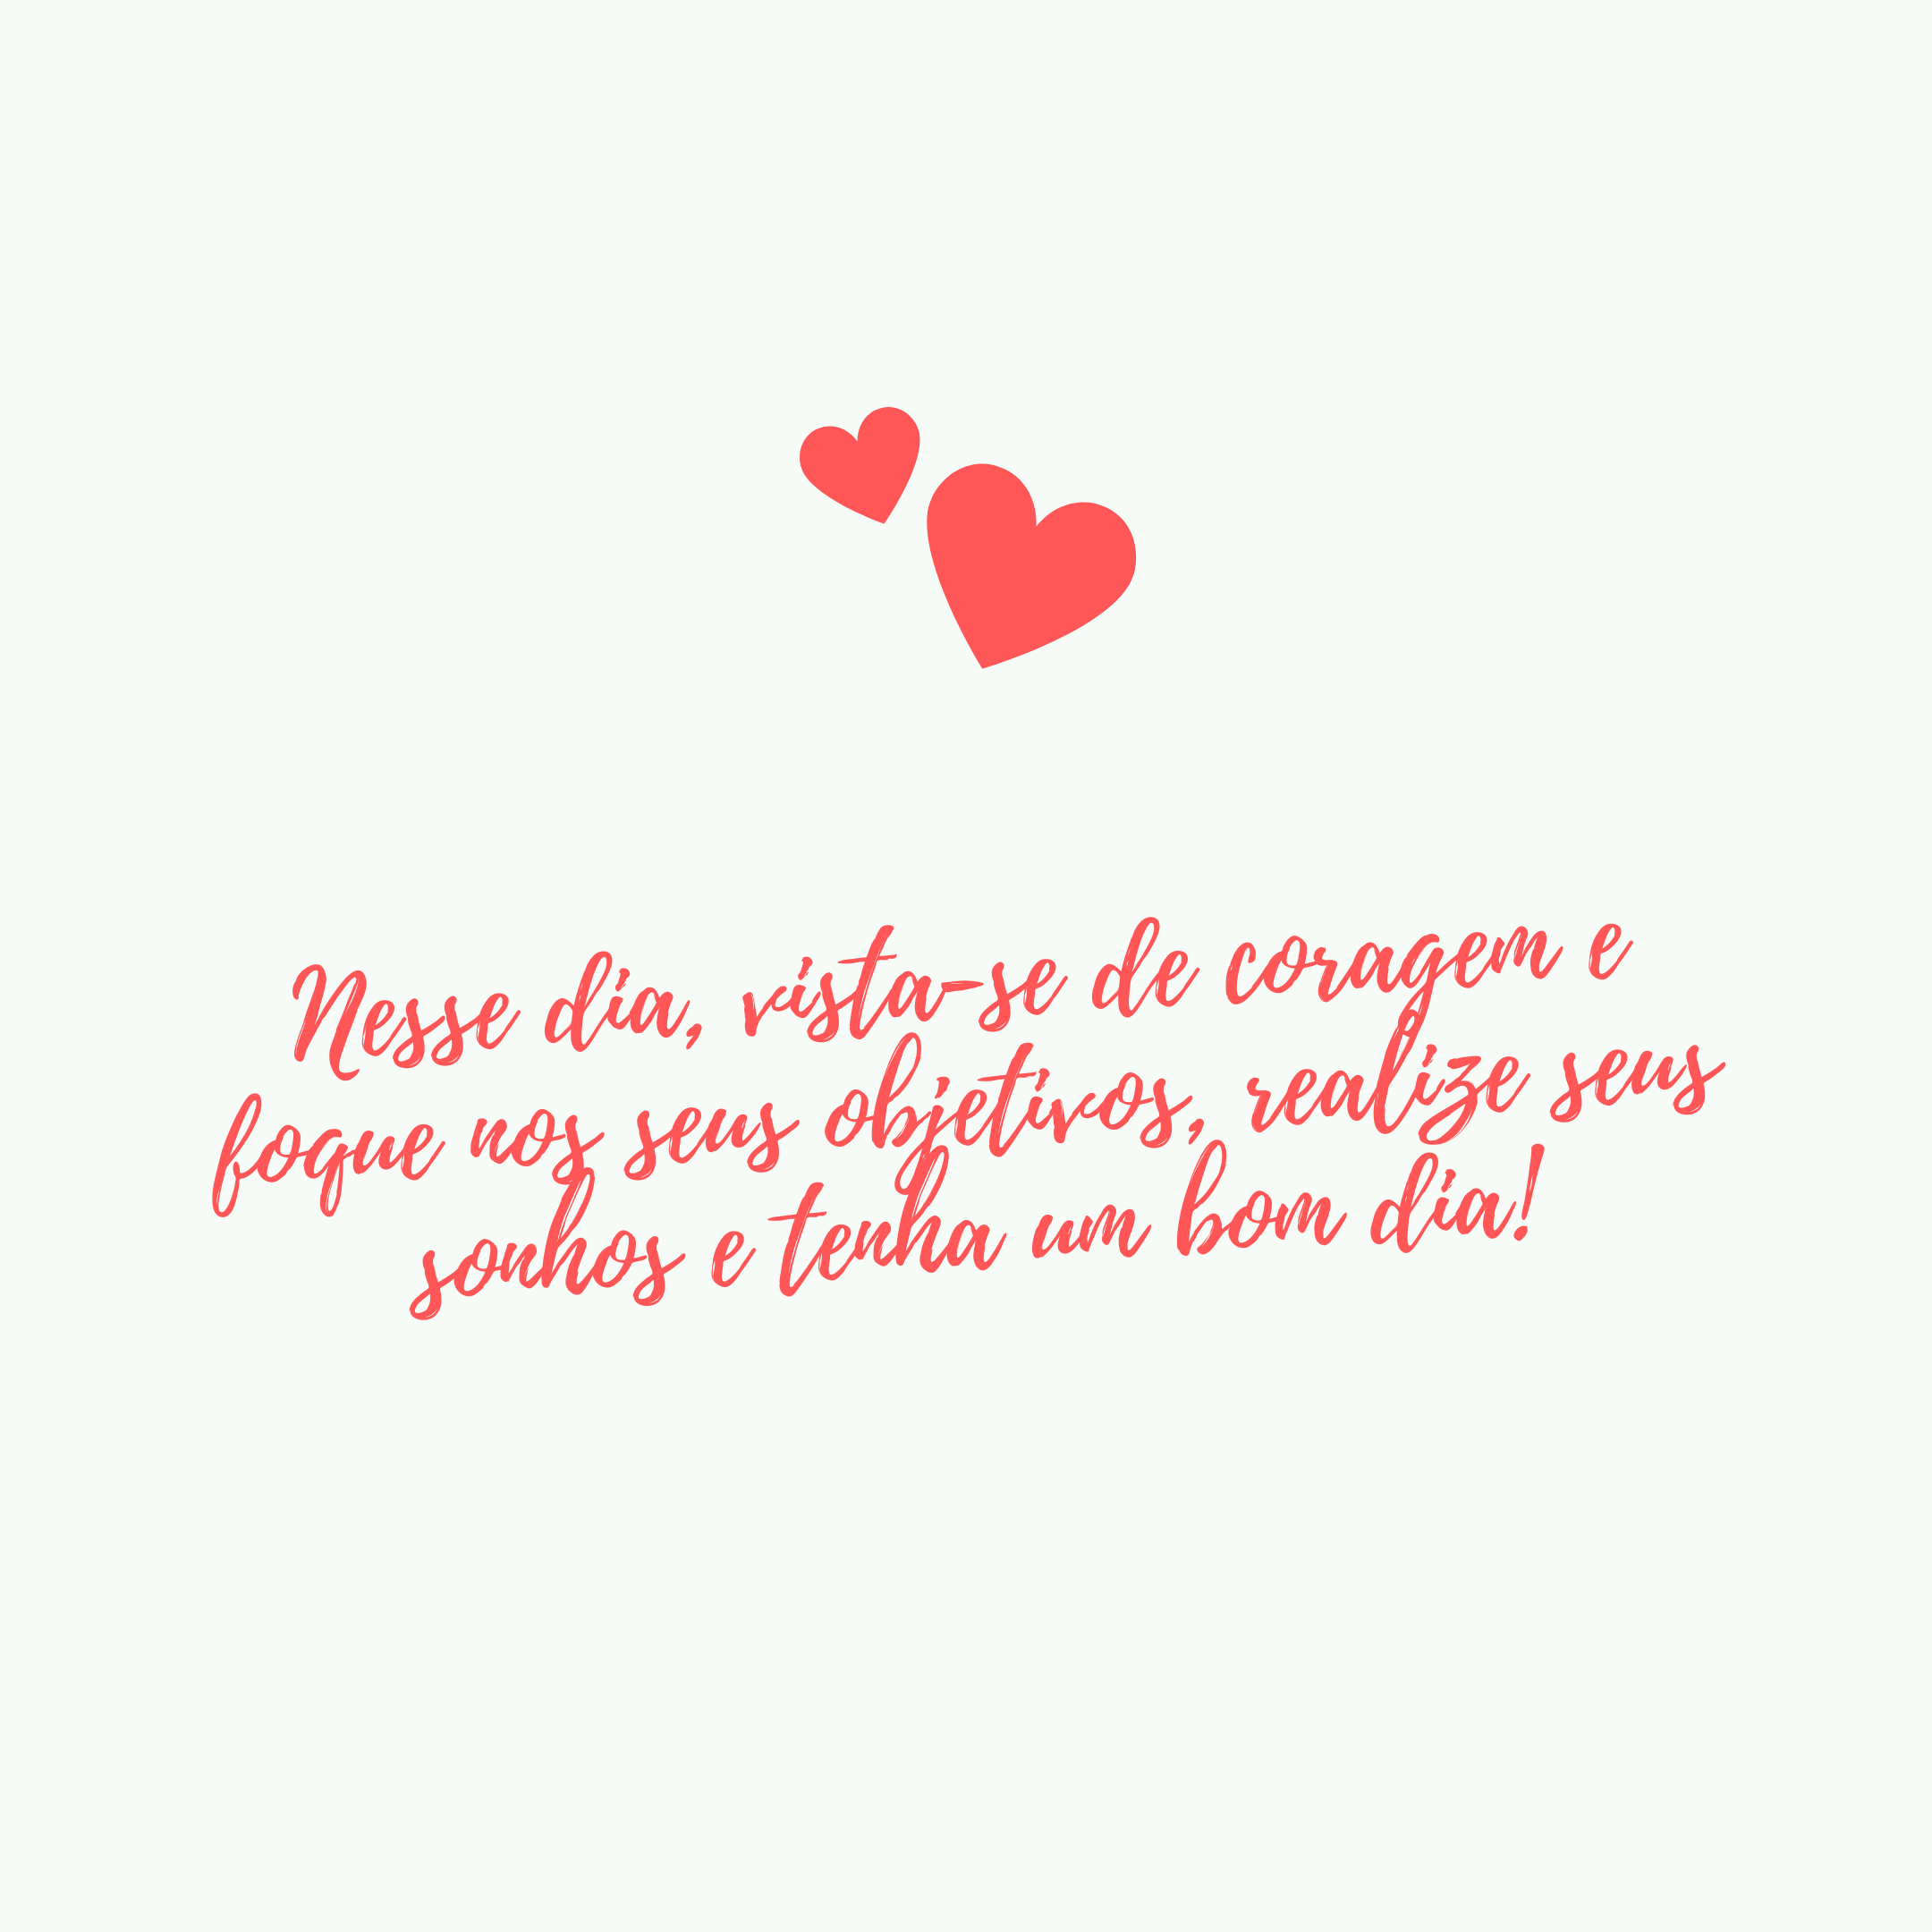 Nesse dia, vistam-se de coragem e
foque nos seus objetivos, realize seus
sonhos e tenha um bom dia!